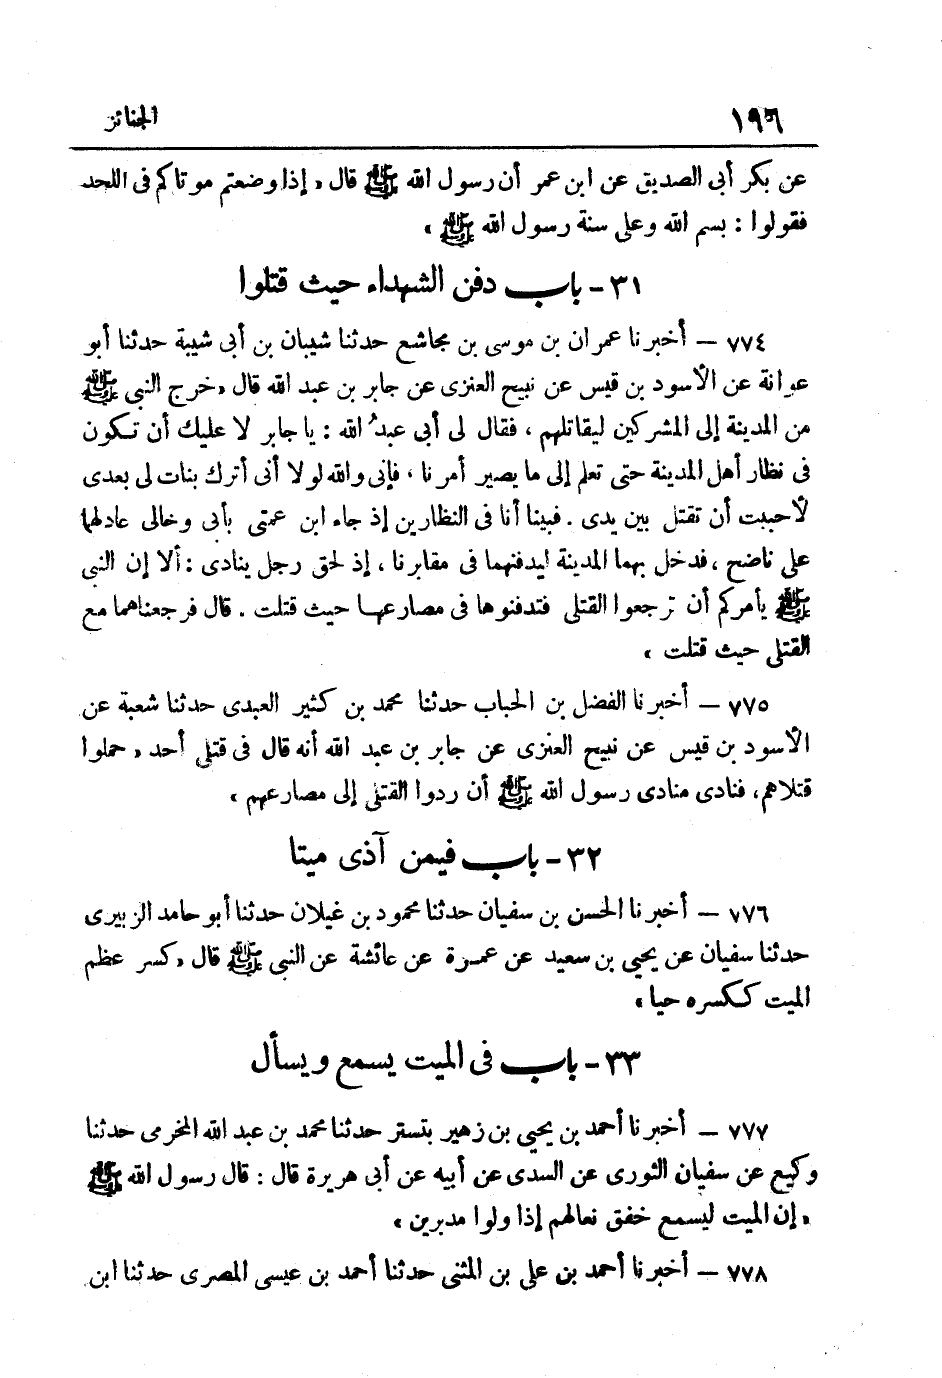 ١٩٦ الجنائز
عن بكر أبى الصديق عن ابن عمر أن رسول الله ﷺ قال « إذا وضعتم موتاكم فى اللحد
فقولوا : بسم الله وعلى سنة رسول الله ﷺ »
٣١ - باب دفن الشهداء حيث قتلوا
٧٧٤ – أخبرنا عمران بن موسى بن مجاشع حدثنا شيبان بن أبى شيبة حدثنا أبو
عوانة عن الأسود بن قيس عن نبيح العنزى عن جابر بن عبد الله قال « خرج النبى ﷺ
من المدينة إلى المشركين ليقاتلهم ، فقال لى أبى عبدُ الله : يا جابر لا عليك أن تكون
فى نظار أهل المدينة حتى تعلم إلى ما يصير أمرنا ، فإنى والله لولا أنى أترك بنات لى بعدى
لأحببت أن تقتل بين يدى . فبينا أنا فى النظارين إذ جاء ابن عمتى بأبى وخالى عادلهما
على ناضح ، فدخل بهما المدينة ليدفنهما فى مقابرنا ، إذ لحق رجل ينادى : ألا إن النبى
ﷺ يأمركم أن ترجعوا القتلى فتدفنوها فى مصارعها حيث قتلت . قال فرجعناهما مع
القتلى حيث قتلت »
٧٧٥ – أخبرنا الفضل بن الحباب حدثنا محمد بن كثير العبدى حدثنا شعبة عن
الأسود بن قيس عن نبيح العنزى عن جابر بن عبد الله أنه قال فى قتلى أحد « حملوا
قتلاهم، فنادى منادى رسول الله ﷺ أن ردوا القتلى إلى مصارعهم »
٣٢ - باب فيمن آذى ميتا
٧٧٦ – أخبرنا الحسن بن سفيان حدثنا محمود بن غيلان حدثنا أبو حامد الزبيرى
حدثنا سفيان عن يحيى بن سعيد عن عمرة عن عائشة عن النبى ﷺ قال « كسر عظم
الميت ككسره حيا »
٣٣ - باب فى الميت يسمع ويسأل
٧٧٧ – أخبرنا أحمد بن يحيى بن زهير بتستر حدثنا محمد بن عبد الله المخرمى حدثنا
وكيع عن سفيان الثورى عن السدى عن أبيه عن أبى هريرة قال : قال رسول الله ﷺ
« إن الميت ليسمع خفق نعالهم إذا ولوا مدبرين »
٧٧٨ – أخبرنا أحمد بن على بن المثنى حدثنا أحمد بن عيسى المصرى حدثنا ابن